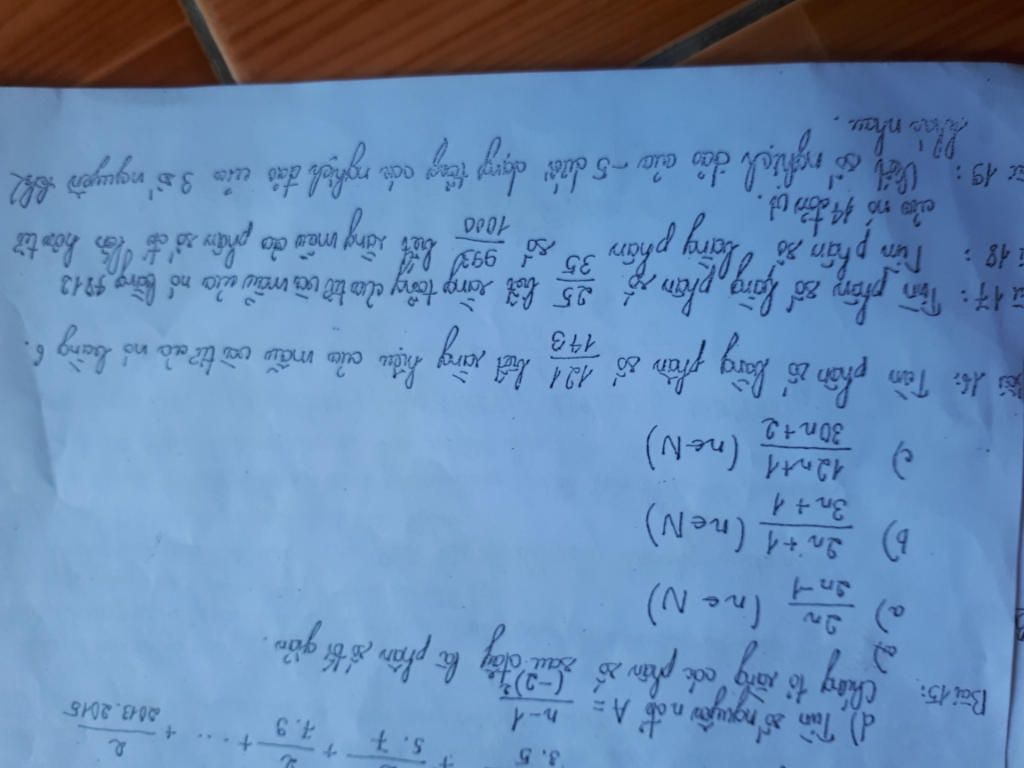 3.5 + 5.7 + 2/7.9 + ... + 2/2013.2015
d) Tìm số nguyên n để A = n-1/(-2)
Bài 15: Chứng tỏ rằng các phân số sau đây là phân số tối giản.
a) 2n/2n-1 (n∈N)
b) 2n+1/3n+1 (n∈N)
c) 12n+1/30n+2 (n∈N)
Bài 16: Tìm phân số bằng phân số 121/143 biết rằng hiệu của mẫu và tử của nó bằng 6.
17: Tìm phân số bằng phân số 25/35 biết rằng tổng của tử và mẫu của nó bằng 4812
18: Tìm phân số bằng phân số 993/1000 biết rằng mẫu của phân số đó lớn hơn tử
của nó 14 đơn vị.
19: Viết số nghịch đảo của -5 dưới dạng tổng các nghịch đảo của 3 số nguyên
khác nhau.